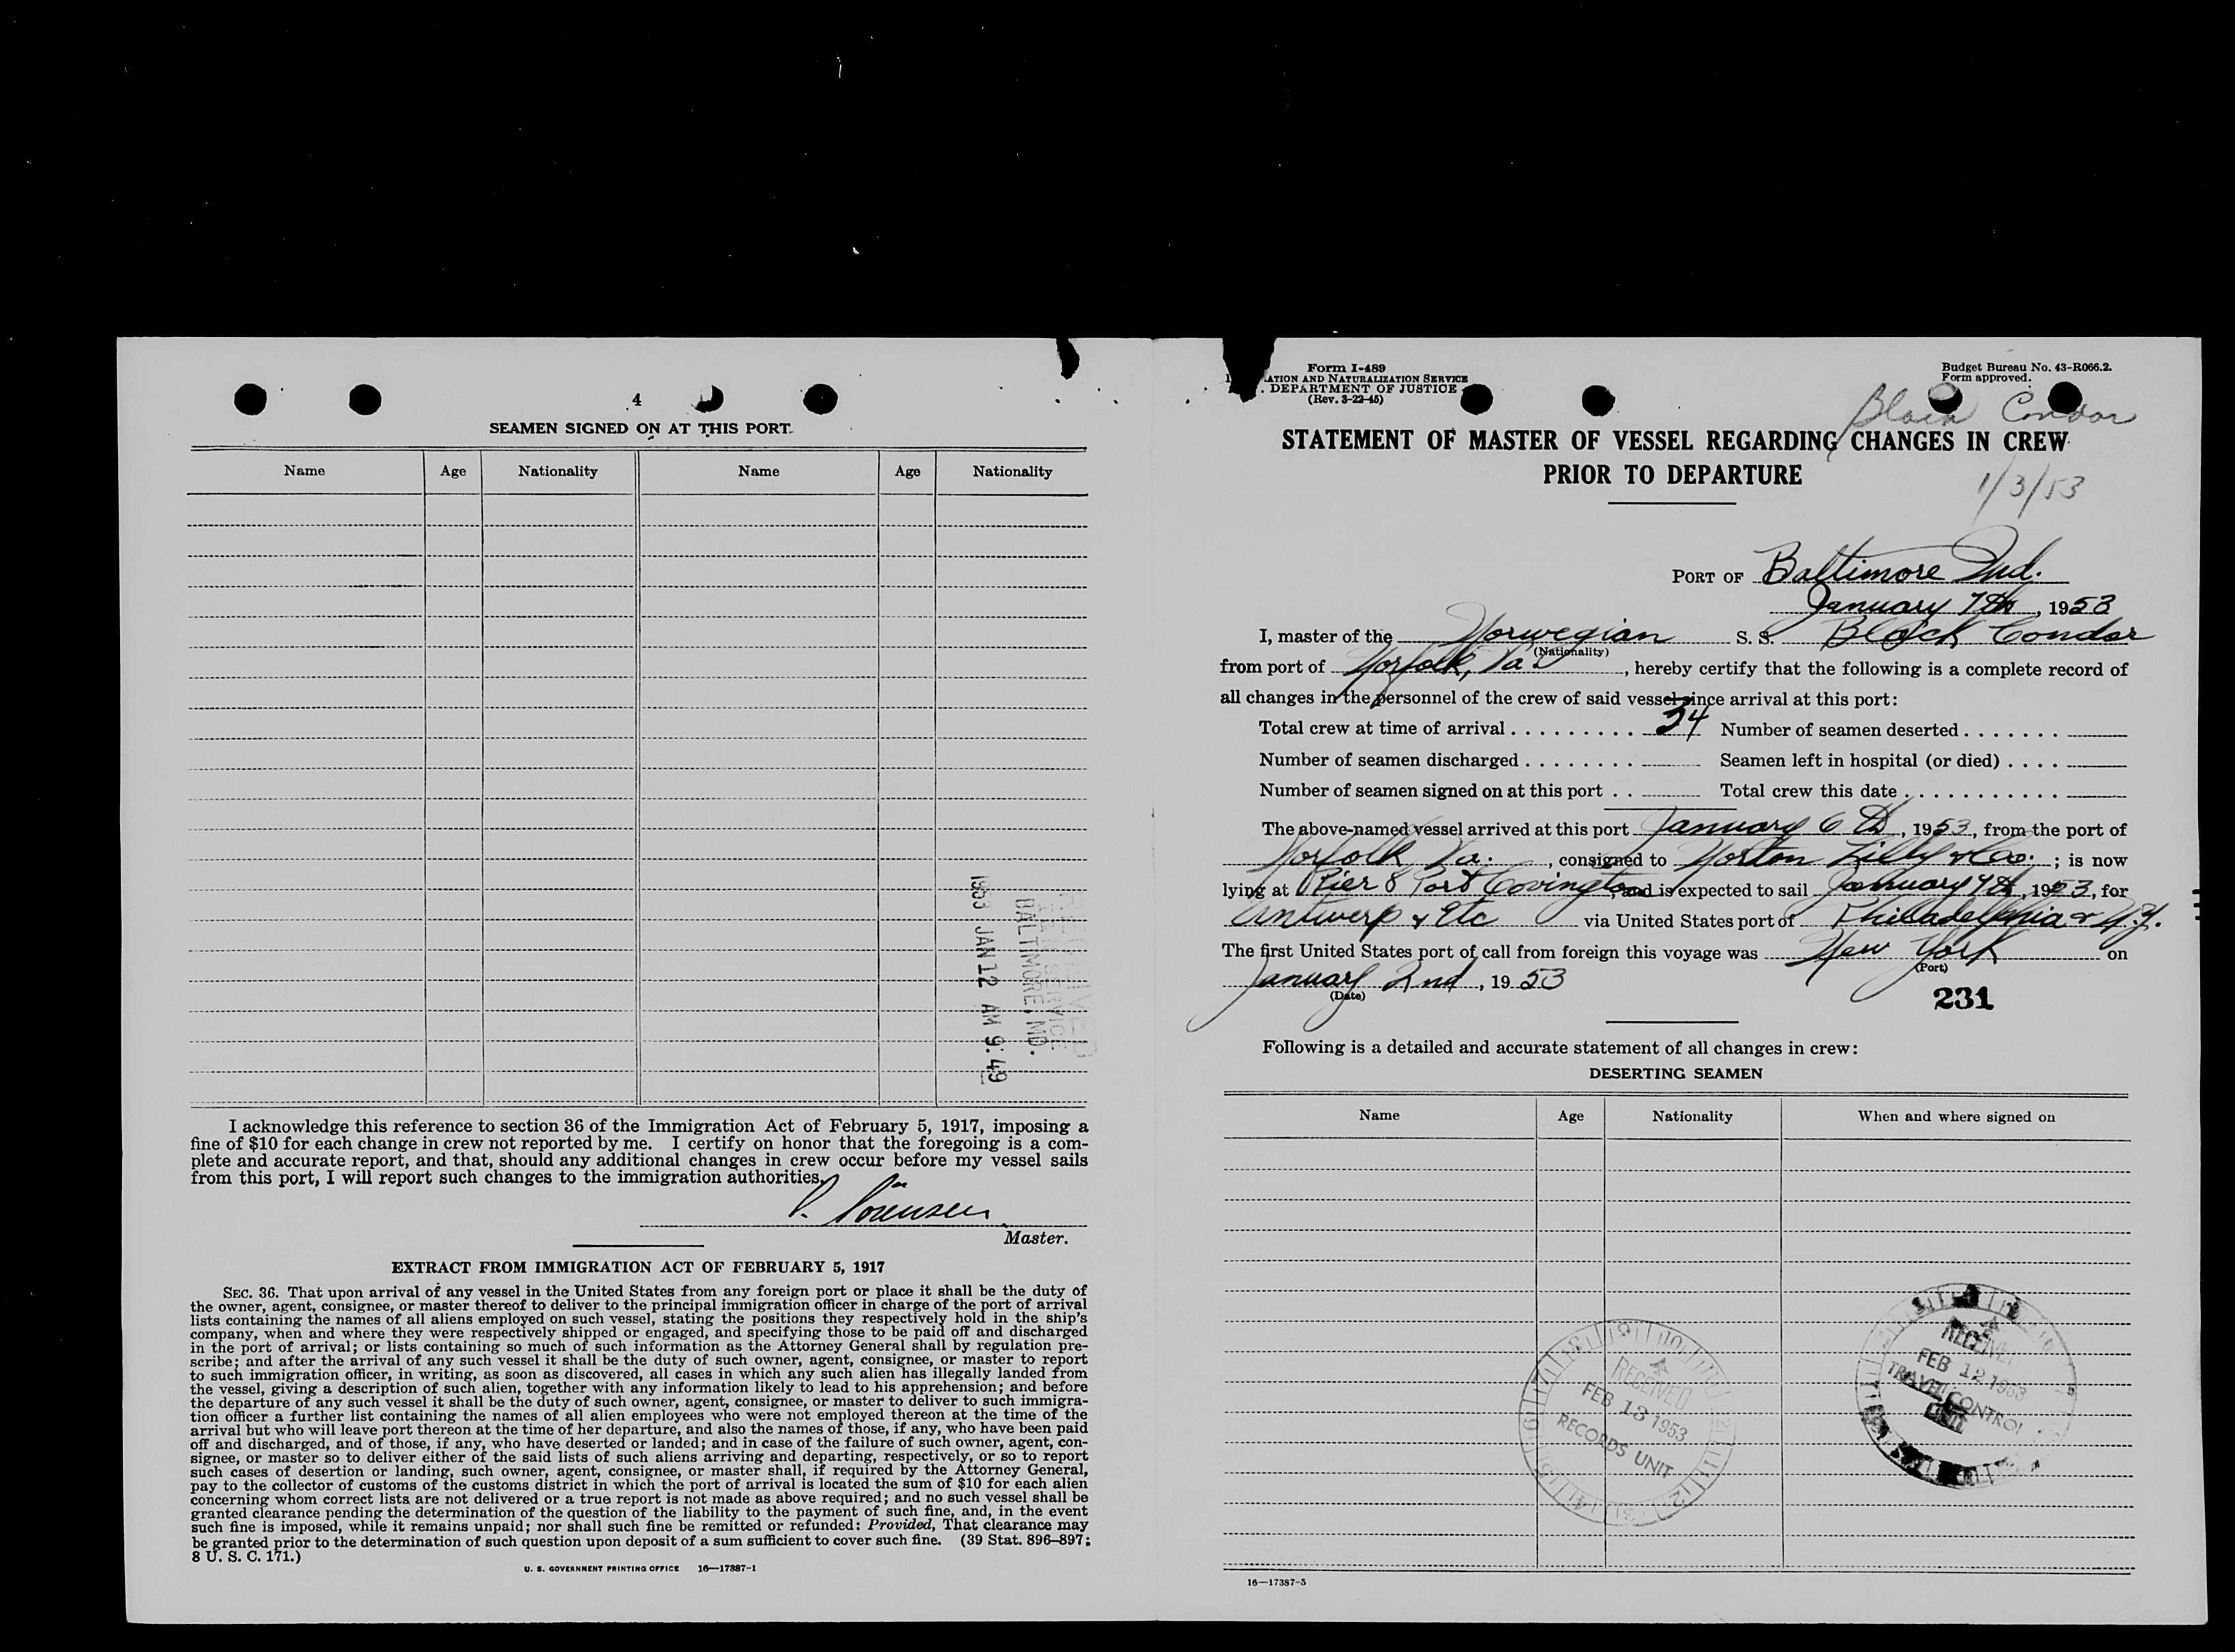 4
SEAMEN SIGNED ON AT THIS PORT
Name Age Nationality Name Age Nationality
1953 JAN 12 AM 9:49
BALTIMORE, MD.
SERVICE
I acknowledge this reference to section 36 of the Immigration Act of February 5, 1917, imposing a
fine of $10 for each change in crew not reported by me. I certify on honor that the foregoing is a com-
plete and accurate report, and that, should any additional changes in crew occur before my vessel sails
from this port, I will report such changes to the immigration authorities.
Sorensen
Master.
EXTRACT FROM IMMIGRATION ACT OF FEBRUARY 5, 1917
SEC. 36. That upon arrival of any vessel in the United States from any foreign port or place it shall be the duty of
the owner, agent, consignee, or master thereof to deliver to the principal immigration officer in charge of the port of arrival
lists containing the names of all aliens employed on such vessel, stating the positions they respectively hold in the ship's
company, when and where they were respectively shipped or engaged, and specifying those to be paid off and discharged
in the port of arrival; or lists containing so much of such information as the Attorney General shall by regulation pre-
scribe; and after the arrival of any such vessel it shall be the duty of such owner, agent, consignee, or master to report
to such immigration officer, in writing, as soon as discovered, all cases in which any such alien has illegally landed from
the vessel, giving a description of such alien, together with any information likely to lead to his apprehension; and before
the departure of any such vessel it shall be the duty of such owner, agent, consignee, or master to deliver to such immigra-
tion officer a further list containing the names of all alien employees who were not employed thereon at the time of the
arrival but who will leave port thereon at the time of her departure, and also the names of those, if any, who have been paid
off and discharged, and of those, if any, who have deserted or landed; and in case of the failure of such owner, agent, con-
signee, or master so to deliver either of the said lists of such aliens arriving and departing, respectively, or so to report
such cases of desertion or landing, such owner, agent, consignee, or master shall, if required by the Attorney General,
pay to the collector of customs of the customs district in which the port of arrival is located the sum of $10 for each alien
concerning whom correct lists are not delivered or a true report is not made as above required; and no such vessel shall be
granted clearance pending the determination of the question of the liability to the payment of such fine, and, in the event
such fine is imposed, while it remains unpaid; nor shall such fine be remitted or refunded: Provided, That clearance may
be granted prior to the determination of such question upon deposit of a sum sufficient to cover such fine. (39 Stat. 896–897;
8 U. S. C. 171.)
U. S. GOVERNMENT PRINTING OFFICE 16—17387-1
Form I-489
ATION AND NATURALIZATION SERVICE
DEPARTMENT OF JUSTICE
(Rev. 3-22-45)
Budget Bureau No. 43-R066.2.
Form approved.
Black Condor
STATEMENT OF MASTER OF VESSEL REGARDING CHANGES IN CREW
PRIOR TO DEPARTURE
1/3/53
PORT OF Baltimore Md.
January 7th, 1953
I, master of the Norwegian S. S. Black Condor
(Nationality)
from port of Norfolk, Va., hereby certify that the following is a complete record of
all changes in the personnel of the crew of said vessel since arrival at this port:
Total crew at time of arrival 34 Number of seamen deserted
Number of seamen discharged Seamen left in hospital (or died)
Number of seamen signed on at this port Total crew this date
The above-named vessel arrived at this port January 6th, 1953, from the port of
Norfolk Va., consigned to Norton Lilly & Co.; is now
lying at Pier 8 Port Covington, and is expected to sail January 7th, 1953, for
Antwerp & Etc via United States port of Philadelphia & N.Y.
The first United States port of call from foreign this voyage was New York on
(Port)
January 2nd, 1953
(Date)
231
Following is a detailed and accurate statement of all changes in crew:
DESERTING SEAMEN
Name Age Nationality When and where signed on
RECEIVED
FEB 12 1953
TRAVEL CONTROL
UNIT
RECEIVED
FEB 13 1953
RECORDS UNIT
16—17387-5